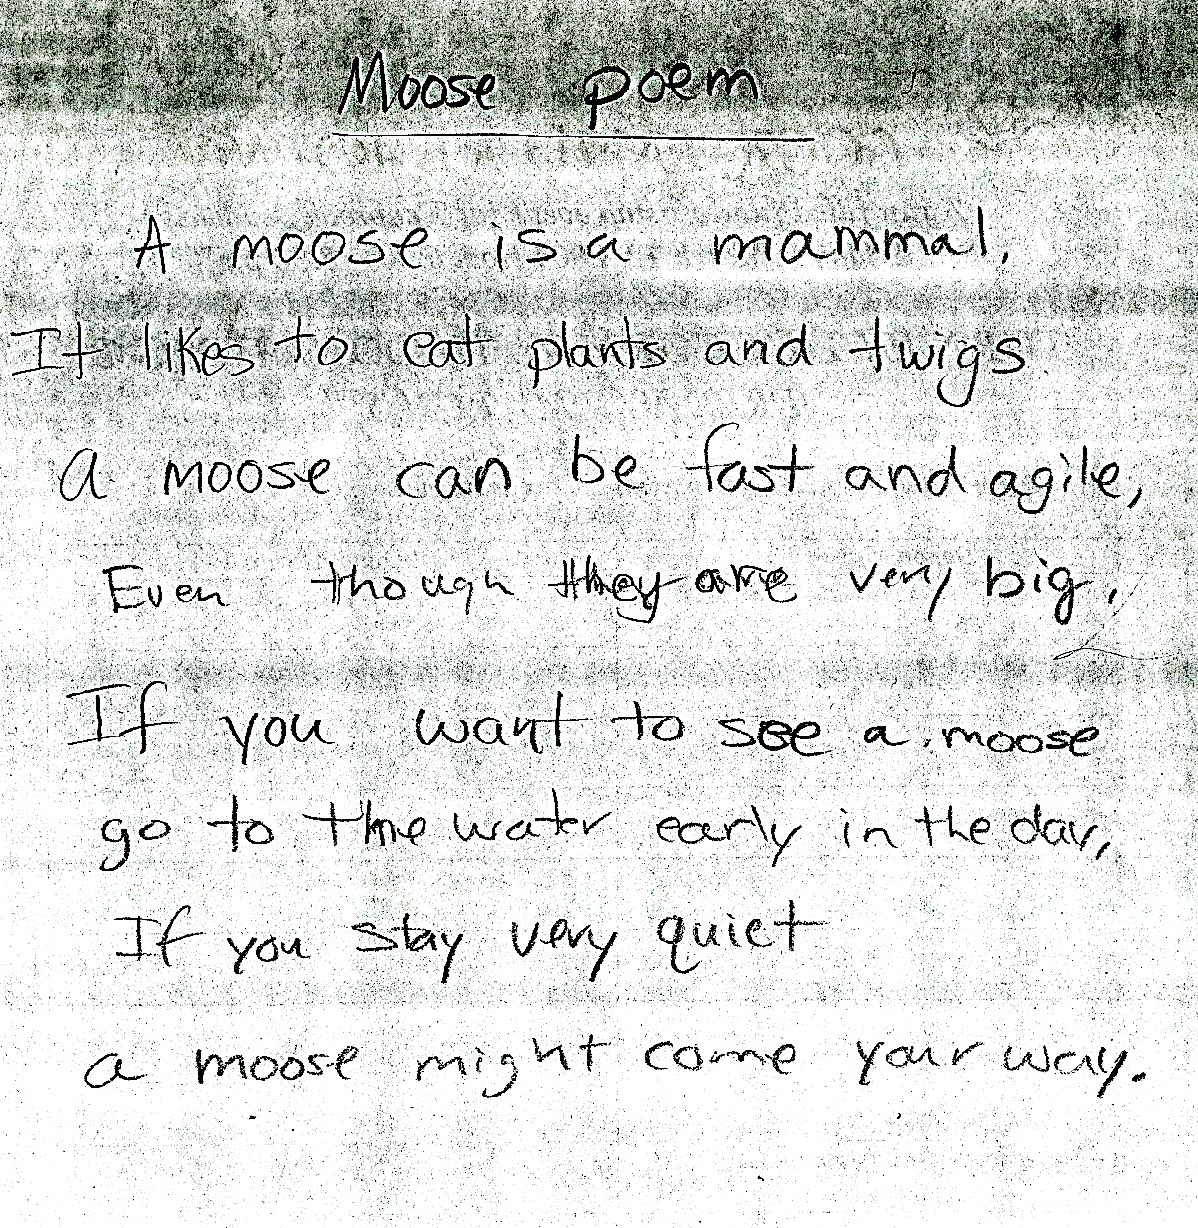 Moose poem
A moose is a mammal,
It likes to eat plants and twigs
a moose can be fast and agile,
Even though they are very big.
If you want to see a moose
go to the water early in the day,
If you stay very quiet
a moose might come your way.